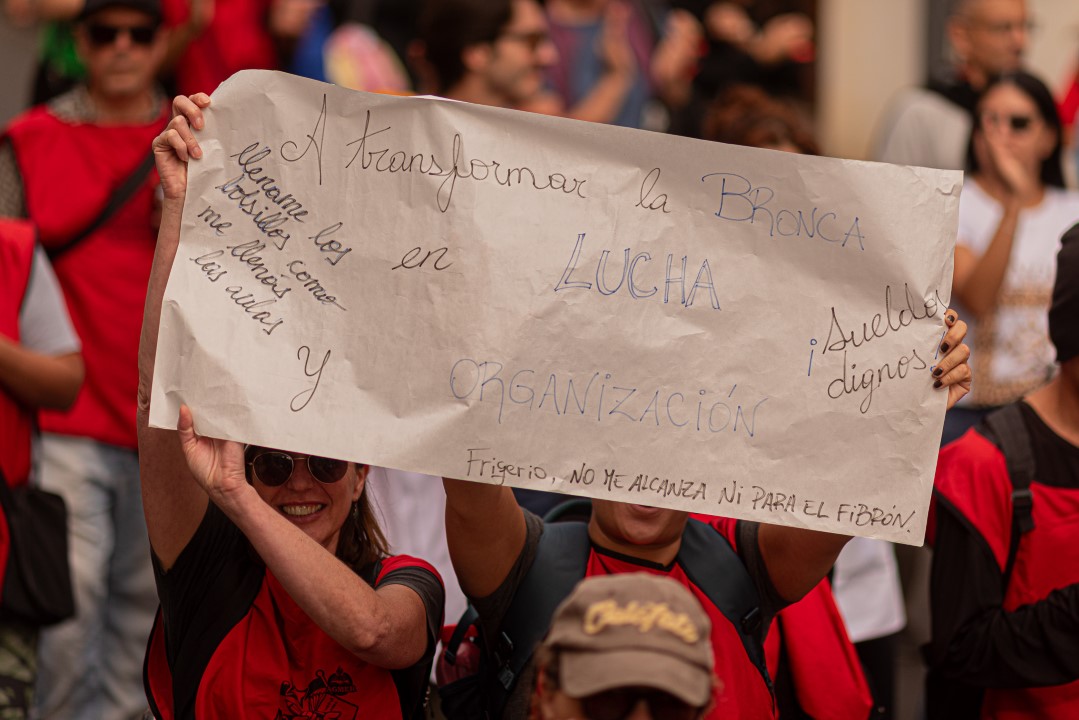 A transformar la BRONCA
en LUCHA
Y ORGANIZACIÓN
llename los
bolsillos como
me llenás
las aulas
¡Sueldos
dignos!
Frigerio, NO ME ALCANZA NI PARA EL FIBRÓN.